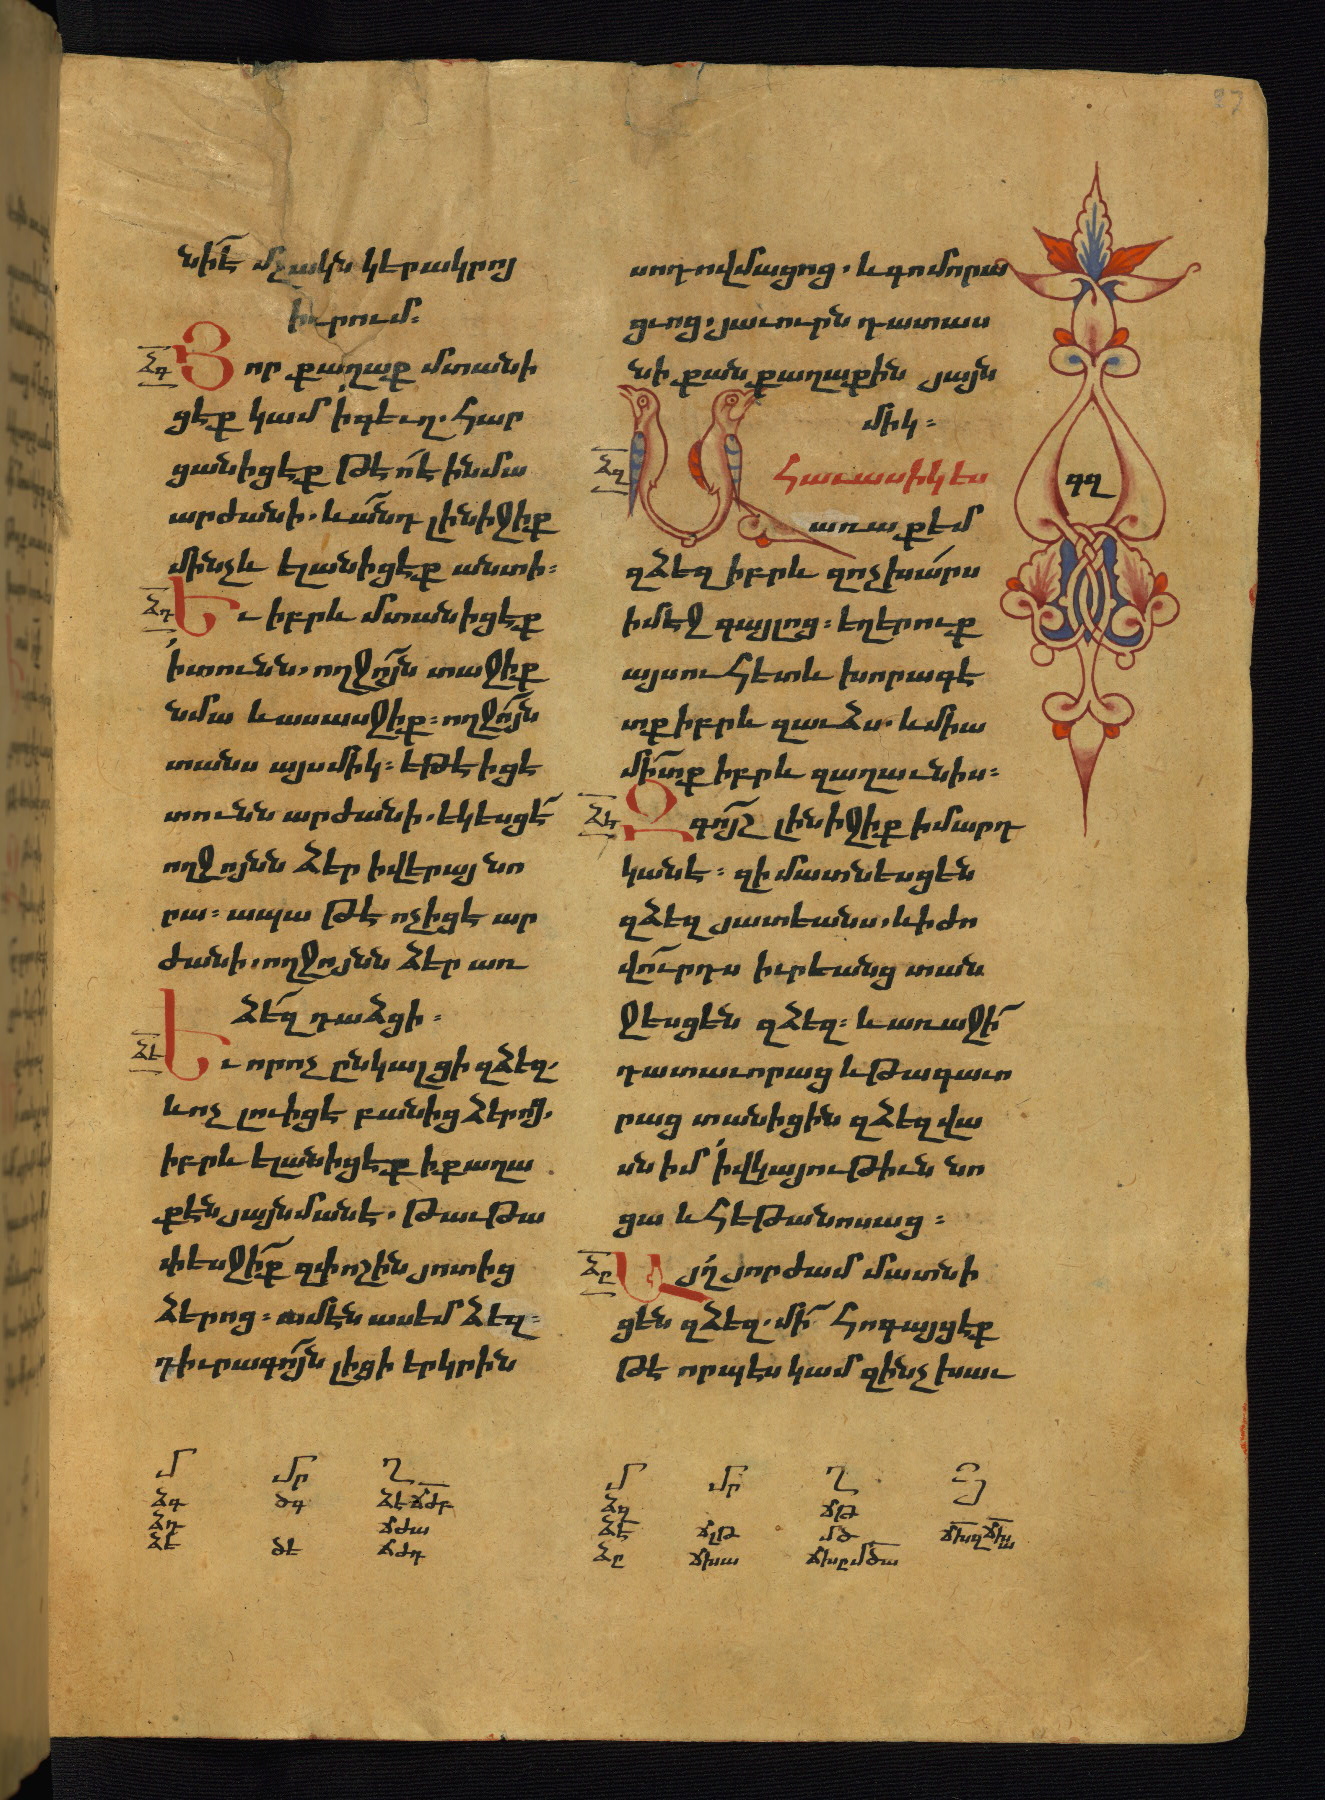 նի՞է մշակն կերակրոյ
իւրում։
ՁԳ Յոր քաղաք մտանի
ցէք կամ ի գեւղ. հար
ցանիցէք թէ ո՞է ինմա
արժանի. և ա՟նդ լինիջիք
մինչև ելանիցէք անտի։
ՁԴ Եւ իբրև մտանիցէք
ի տունն, ողջո՟յն տաջիք
նմա և ասասջիք։ ողջո՟յն
տանս այսմիկ։ եթէ իցէ
տունն արժանի. եկեսցէ՟
ողջոյնն ձեր ի վերայ նո
րա։ ապա թէ ոչ իցէ ար
ժանի, ողջոյնն ձեր առ
ձե՟զ դաձցի։
ՁԵ Եւ որ ոչ ընկալցի զձեզ.
և ոչ լուիցէ բանից ձերոց.
իբրև ելանիցէք ի քաղա
քէն յայնմանէ. թաւթա
փեսջի՟ք զփոշին յոտից
ձերոց։ ամէն ասեմ ձեզ։
դիւրագո՟յն լիցի երկրին
սոդովմացոց. և գոմորա
ցւոց. յաւուրն դատաս
նի քան քաղաքին յայն
միկ։
ՁԶ Ահաւասիկ ես
առաքեմ
զձեզ իբրև զոչխա՟րս
ի մէջ գայլոց։ եղերուք
այսուհետև խորագէ
տք իբրև զաւձս. և միա
մի՟տք իբրև զաղաւնիս։
ՁԷ Զգո՟յշ լինիջիք ի մարդ
կանէ։ զի մատնեսցեն
զձեզ յատեանս, և ի ժո
վո՟ւրդս իւրեանց տան
ջեսցեն զձեզ։ և առաջի՟
դատաւորաց և թագաւո
րաց տանիցին զձեզ վա
սն իմ ի վկայութիւն նո
ցա և հեթանոսաց։
ՁԸ Այղ յորժամ մատնի
ցեն զձեզ. մի՟ հոգայցէք
թէ որպէս կամ զինչ խաւ
ԳԶ
Մ Մր Ղ
ՁԳ ԾԳ ՁԷ ՃԺԲ
ՁԴ ՃԺԱ
ՁԵ ԾԵ ՃԺԴ
Մ Մր Ղ Յհ
ՁԶ ՃԹ
ՁԷ ՃԼԹ ՄԾ
ՁԸ ՃԽԱ